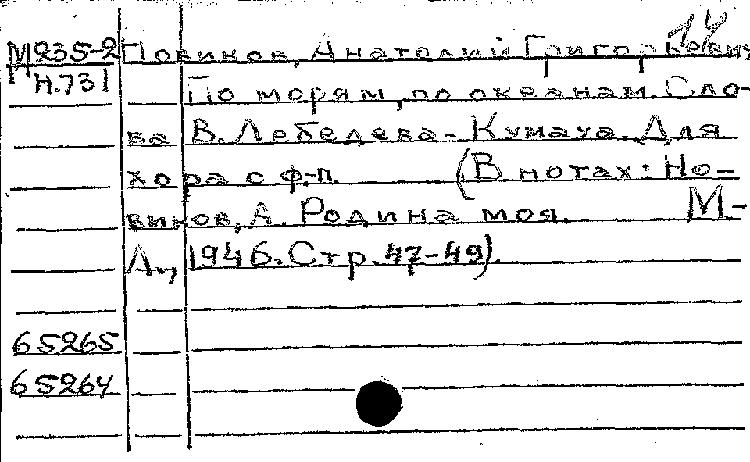 14
М235-2 Новиков, Анатолий Григорьевич
Н.731 По морям, по океанам. Сло-
ва В. Лебедева-Кумача. Для
хора с ф-п. (В нотах: Но-
виков, А. Родина моя. М-
Л., 1946. Стр. 47-49).
65265
65264